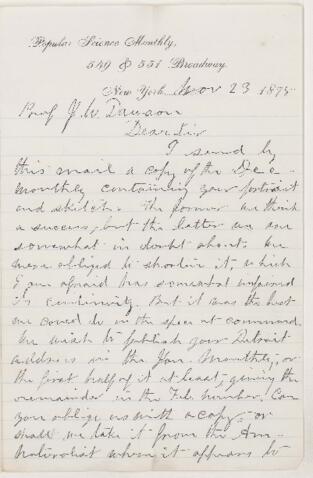 Popular Science Monthly,
549 & 551 Broadway.
New York Nov 23 1875
Prof J. W. Dawson
Dear Sir
I send by
this mail a copy of the Dec
monthly containing your portrait
and sketch. The former we think
a success, but the latter we are
somewhat in doubt about. We
were obliged to shorten it, which
I am afraid has somewhat injured
its continuity. But it was the best
we could do in the space at command.
We wish to publish your Detroit
address in the Jan. Monthly, or
the first half of it at least, giving the
remainder in the Feb. number. Can
you oblige us with a copy, or
shall we take it from the Am-
Naturalist when it appears to